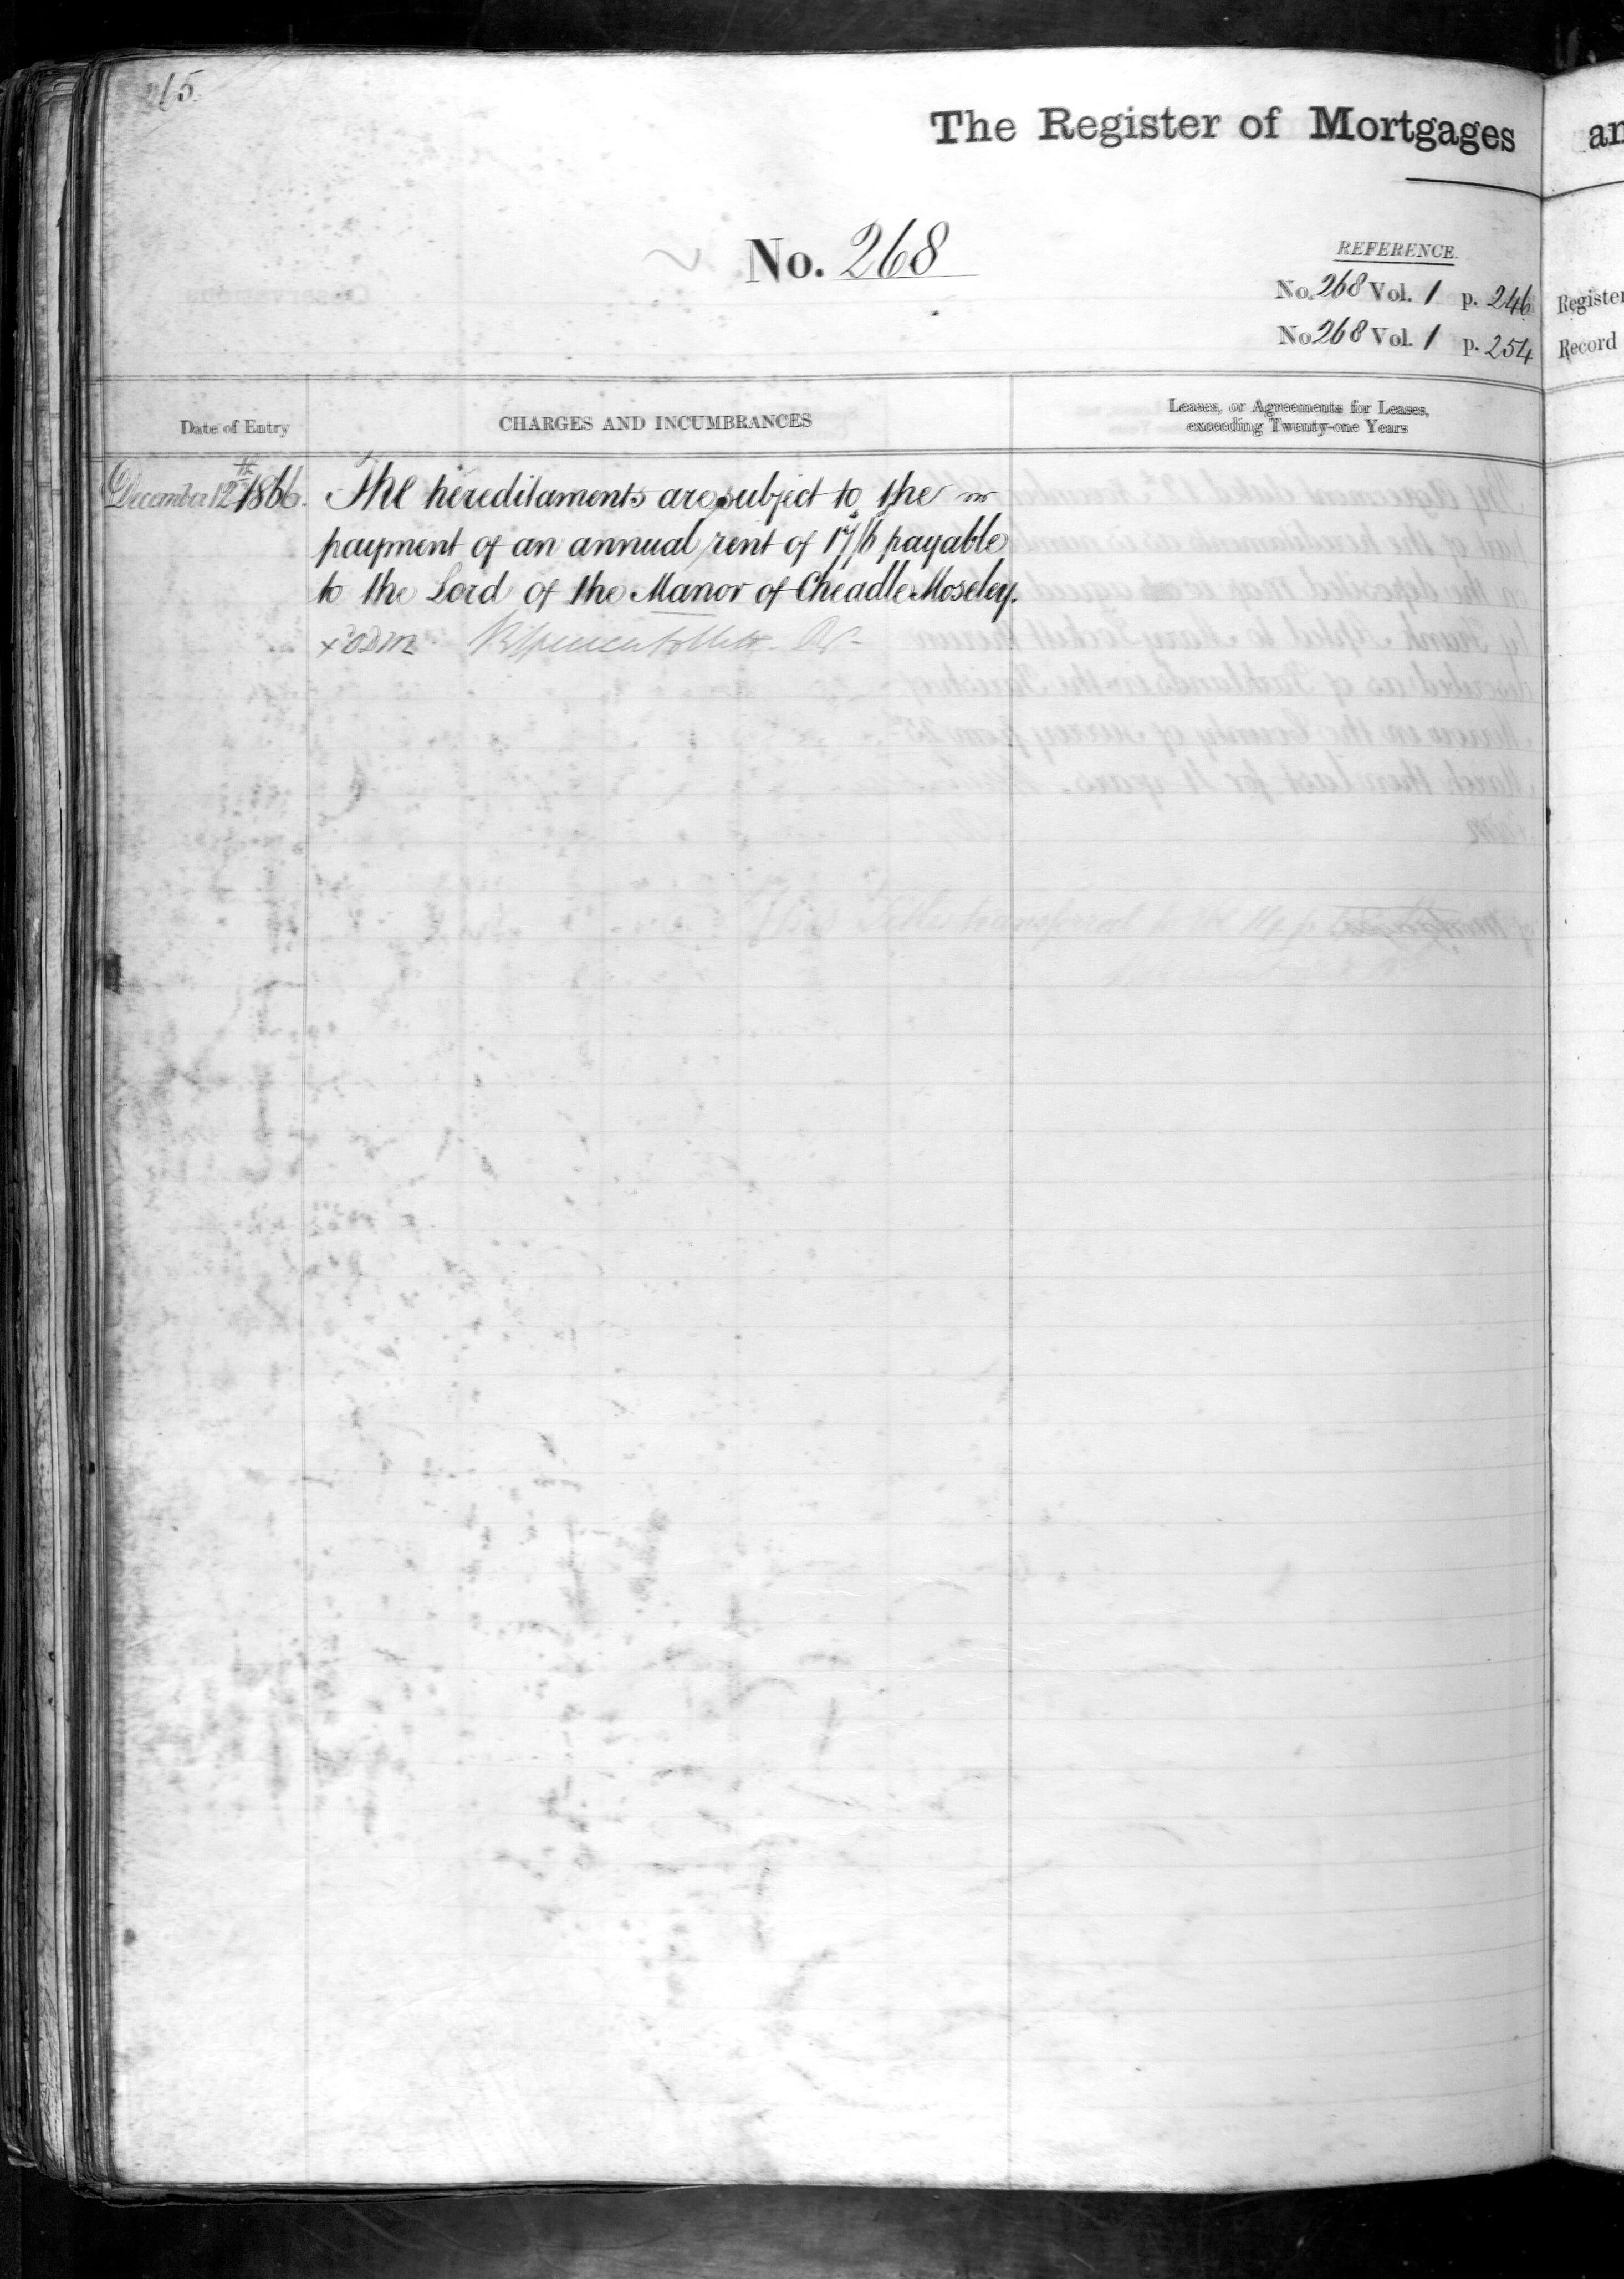 215.
The Register of Mortgages
No. 268
REFERENCE.
No. 268 Vol. 1 p. 246
No 268 Vol. 1 p. 254
Register
Record
Date of Entry
CHARGES AND INCUMBRANCES
Leases, or Agreements for Leases,
exceeding Twenty-one Years
December 12th 1866.
The hereditaments are subject to the
payment of an annual rent of 17s/6 payable
to the Lord of the Manor of Cheadle Moseley.
Title transferred to the